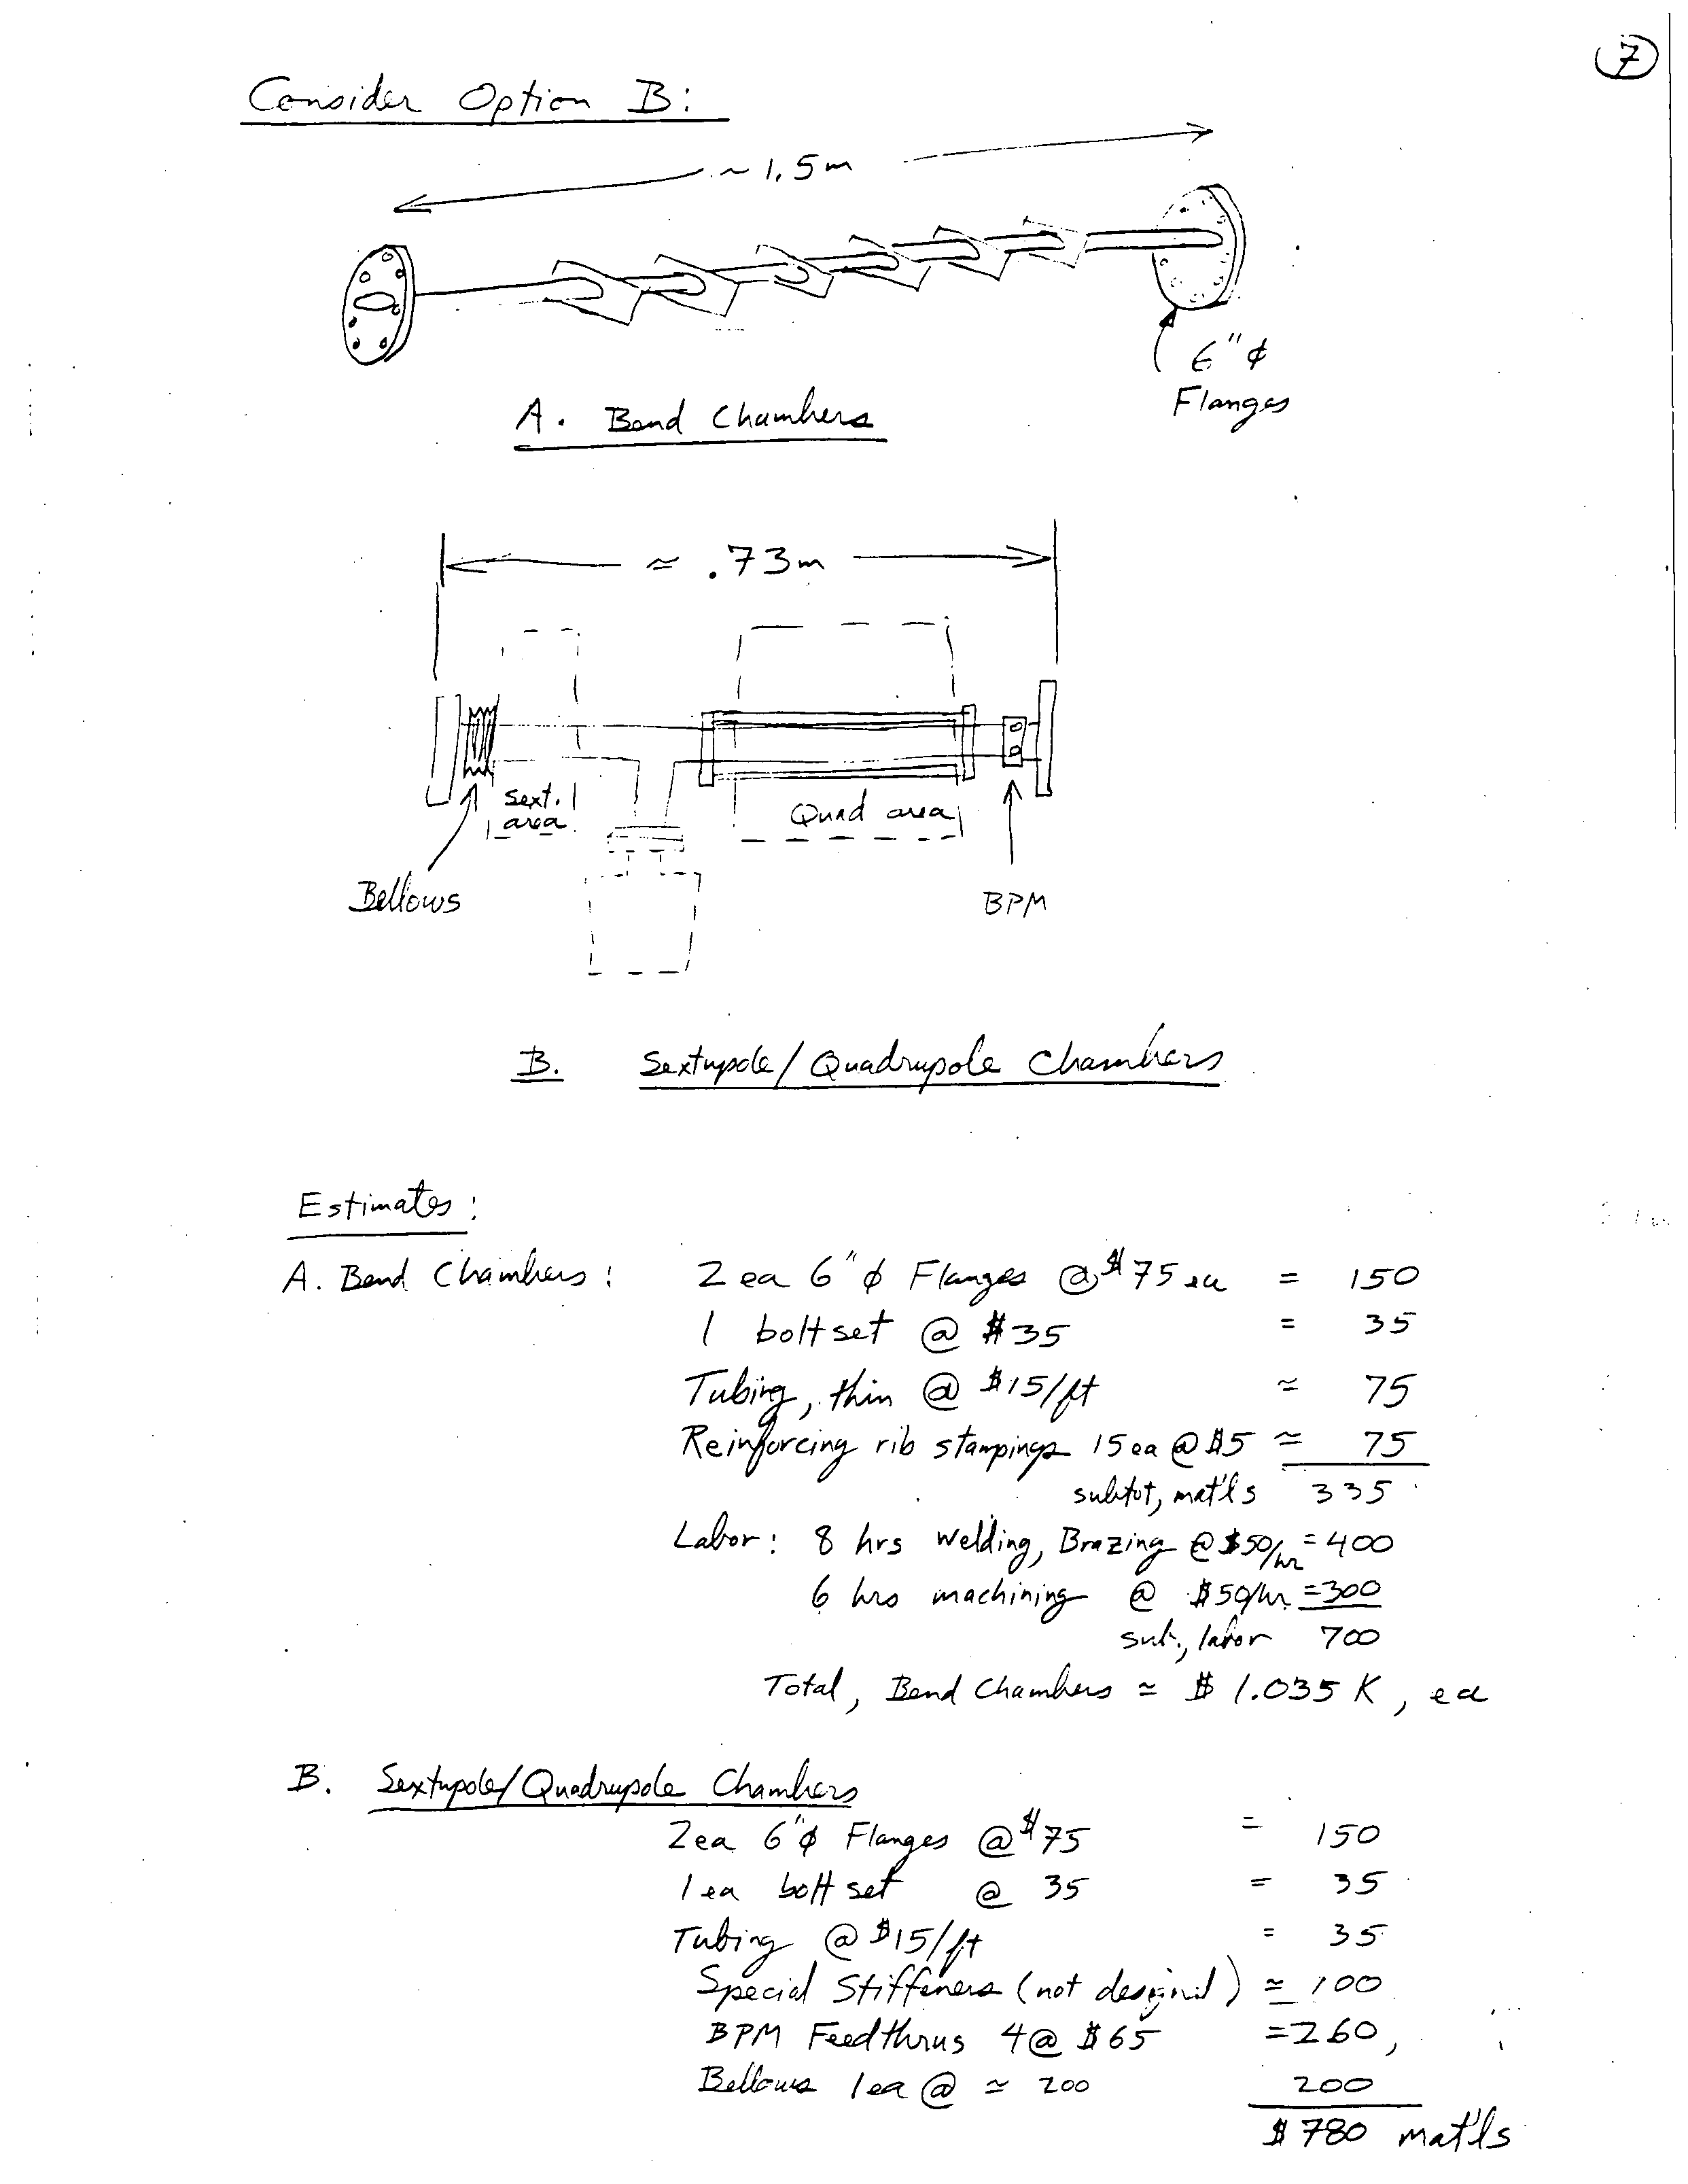 7
Consider Option B:
~ 1.5m
6" ¢
Flanges
A. Bend Chambers
≈ .73m
Sext.
area
Quad area
Bellows
BPM
B. Sextupole/Quadrupole Chambers
Estimates:
A. Bend Chambers: 2 ea 6" ϕ Flanges @ $75 ea = 150
1 bolt set @ $35 = 35
Tubing, thin @ $15/ft ≃ 75
Reinforcing rib stampings 15 ea @ $5 ≃ 75
subtot, mat'ls 335
Labor: 8 hrs Welding, Brazing @ $50/hr = 400
6 hrs machining @ $50/hr = 300
sub., labor 700
Total, Bend Chambers ≃ $1.035 K, ea
B. Sextupole/Quadrupole Chambers
2ea 6" ϕ Flanges @ $75 = 150
1 ea bolt set @ 35 = 35
Tubing @ $15/ft = 35
Special Stiffeners (not designed) ≃ 100
BPM Feedthrus 4 @ $65 = 260,
Bellows 1ea @ ≃ 200 200
$780 mat'ls